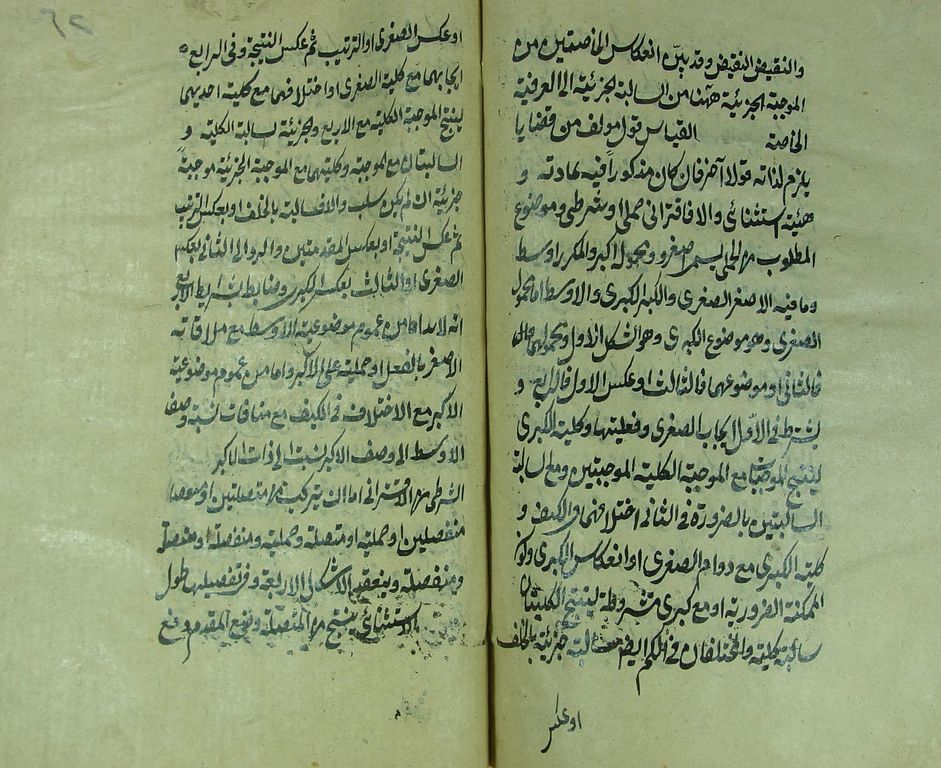 والنقيض النقيض وقد بيّن انعكاس الخاصتين من
الموجبة الجزئية ههنا من السالبة الجزئية الى العرفية
الخاصة القياس قول مولف من قضايا
يلزم لذاته قولا آخر فان كان مذكوراً فيه بمادته و
هيئته استثنائي والا فاقتراني حملي او شرطي وموضوع
المطلوب من الحملي يسمى اصغر و محموله اكبر والمكرر اوسط
وما فيه الاصغر الصغرى والاكبر الكبرى والاوسط اما محمول
الصغرى وهو موضوع الكبرى وهو الشكل الاول او محمولهما
فالثاني او موضوعهما فالثالث او عكس الاول فالرابع و
يشترط في الاول ايجاب الصغرى وفعليتها وكلية الكبرى
لينتج الموجبتان مع الموجبة الكلية الموجبتين ومع السالبة
السالبتين بالضرورة في الثاني اختلافهما في الكيف و
كلية الكبرى مع دوام الصغرى او انعكاس الكبرى وكون
الممكنة الضرورية او مع كبرى مشروطة لينتج الكليتان
سالبة كلية والمختلفان في الكم ايضا سالبة جزئية بالخلف
او عكس
او عكس الصغرى او الترتيب ثم عكس النتيجة وفي الرابع
ايجابهما مع كلية الصغرى او اختلافهما مع كلية احديهما
لينتج الموجبة الكلية مع الاربع والجزئية سالبة الكلية و
السالبتان مع الموجبة وكليتهما مع الموجبة الجزئية موجبةً
جزئية ان لم يكن سلب والا فسالبة بالخلف او بعكس الترتيب
ثم عكس النتيجة او بعكس المقدمتين والرد الى الثاني بعكس
الصغرى او الثالث بعكس الكبرى وضابط شرايط الاربع
انه لابد اما من عموم موضوعية الاوسط مع ملاقاته
الاصغر بالفعل او حمليته على الاكبر واما من عموم موضوعية
الاكبر مع الاختلاف في الكيف مع منافات نسبة وصف
الاوسط الى وصف الاكبر نسبته الى ذات الاكبر
الشرطي من الاقتراني اما ان يتركب من متصلتين او
منفصلين او حملية او متصلة وحملية ومنفصلة او متصلة
ومنفصلة وينعقد الاشكال الاربعة وفي تفصيلها طول
الاستثنائي ينتج من المتصلة وضع المقدم ورفع